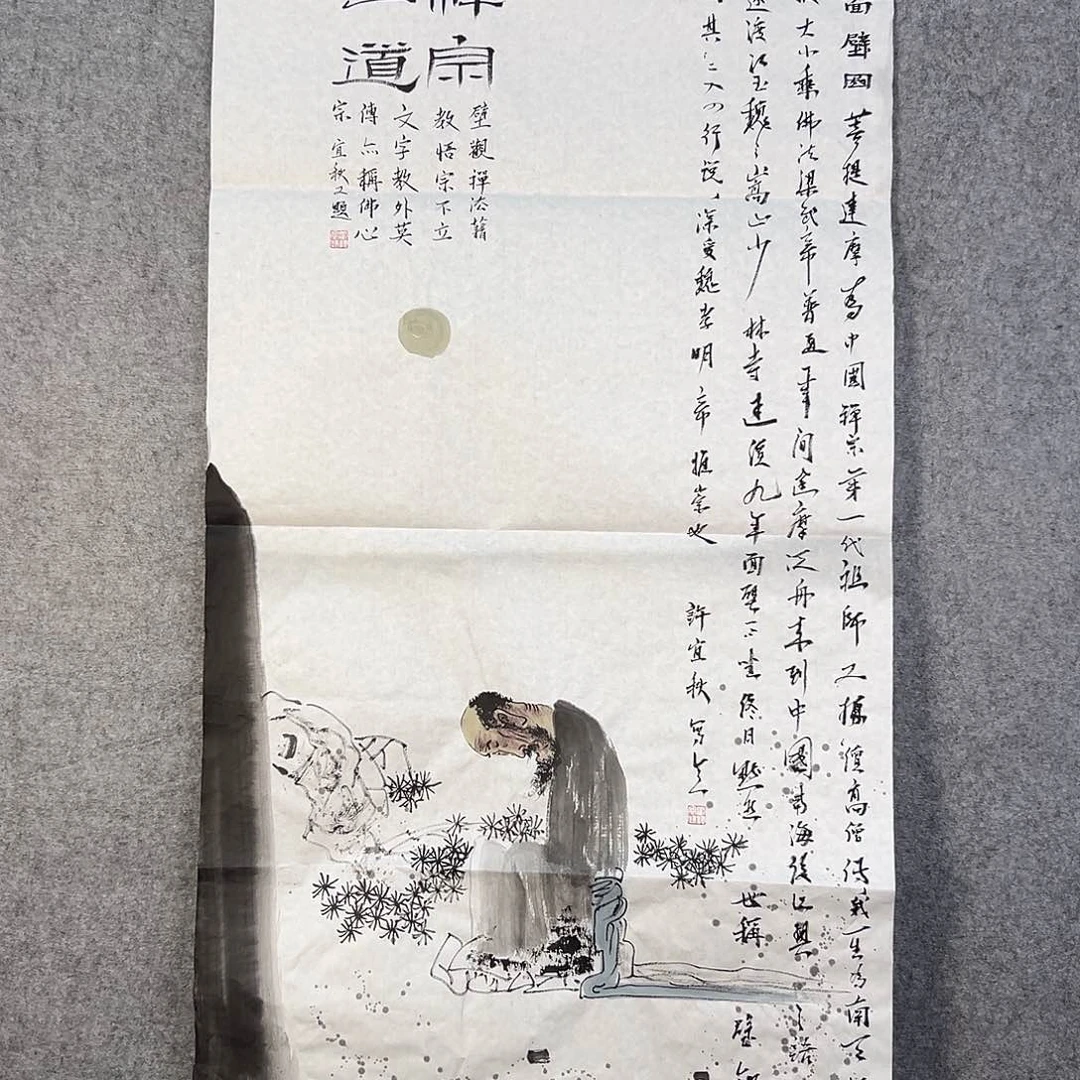 面壁图 菩提达摩为中國禅宗第一代祖師 又據續高僧傳載 一生為南天
大小乘佛法 梁武帝普通年间達摩泛舟来到中國南海 後
渡江至魏之嵩山少林寺 達後九年面壁而坐 终日默然 世稱 壁觀
其二入四行说 深受魏孝明帝推崇也 許宜秋寫之
禅宗
道
壁觀禪法藉
教悟宗不立
文字教外
傳亦稱佛心
宗 宜秋又題